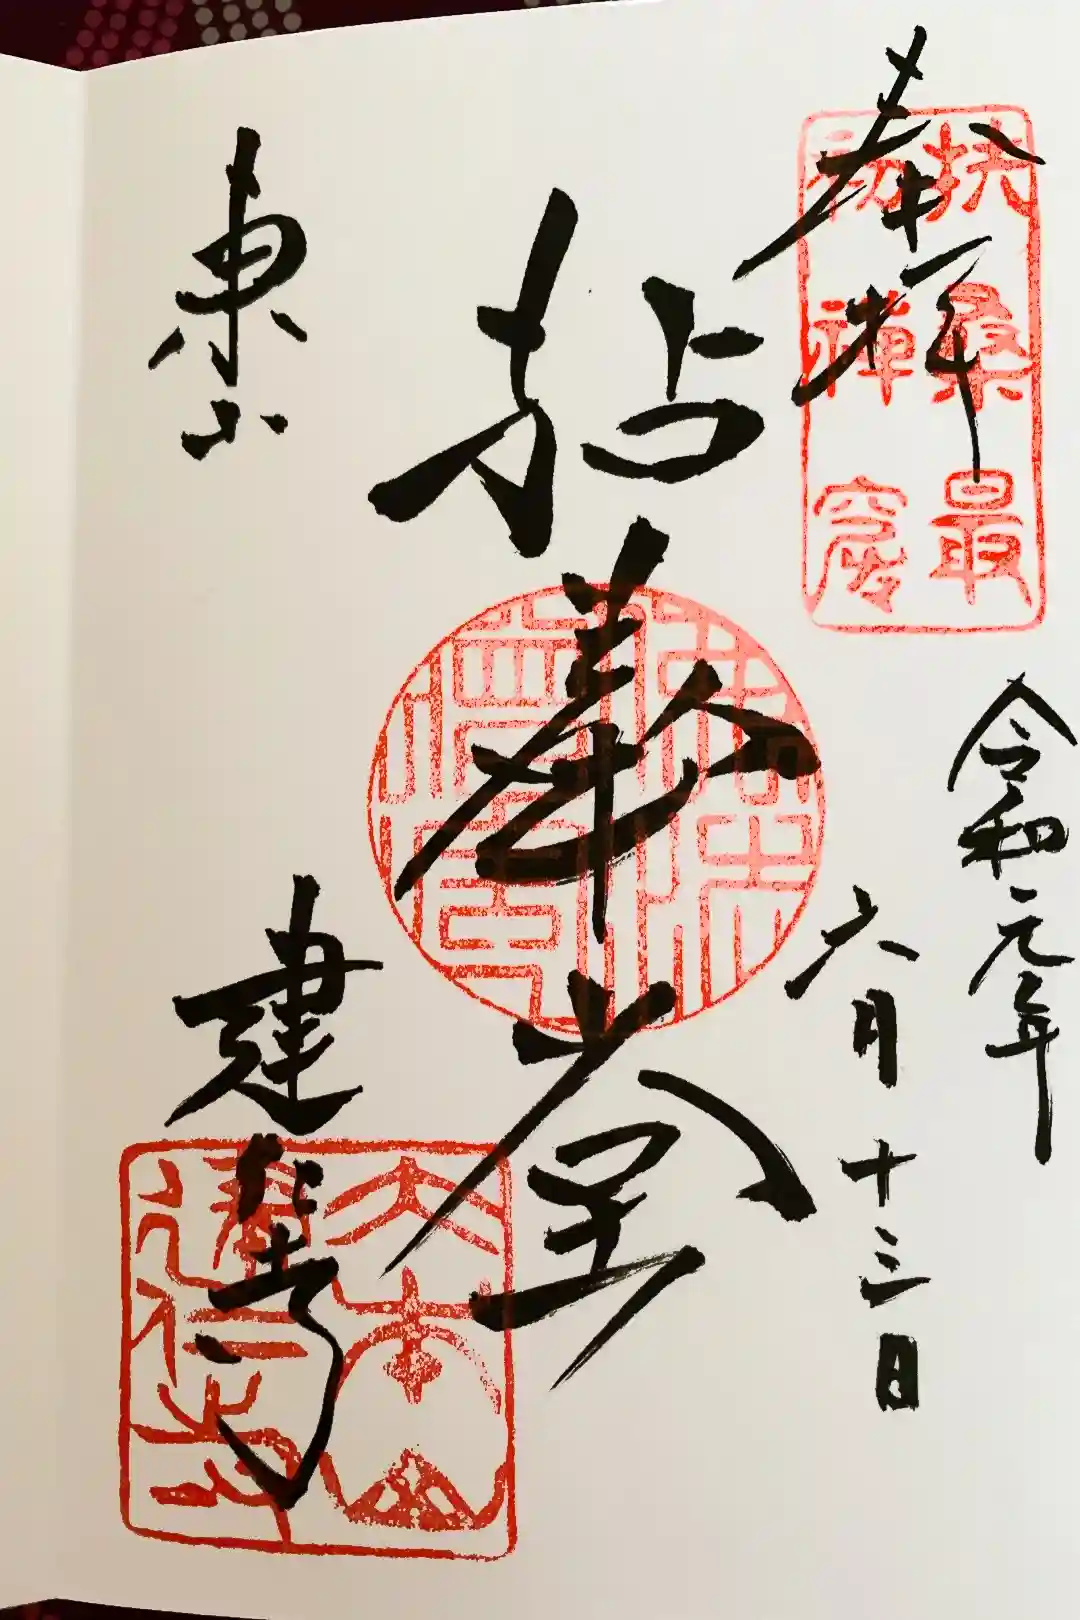 奉拝
扶桑最
初禪窟
令和元年
六月十三日
拈華堂
佛法
僧寳
東山
建仁寺
大本山
建仁寺